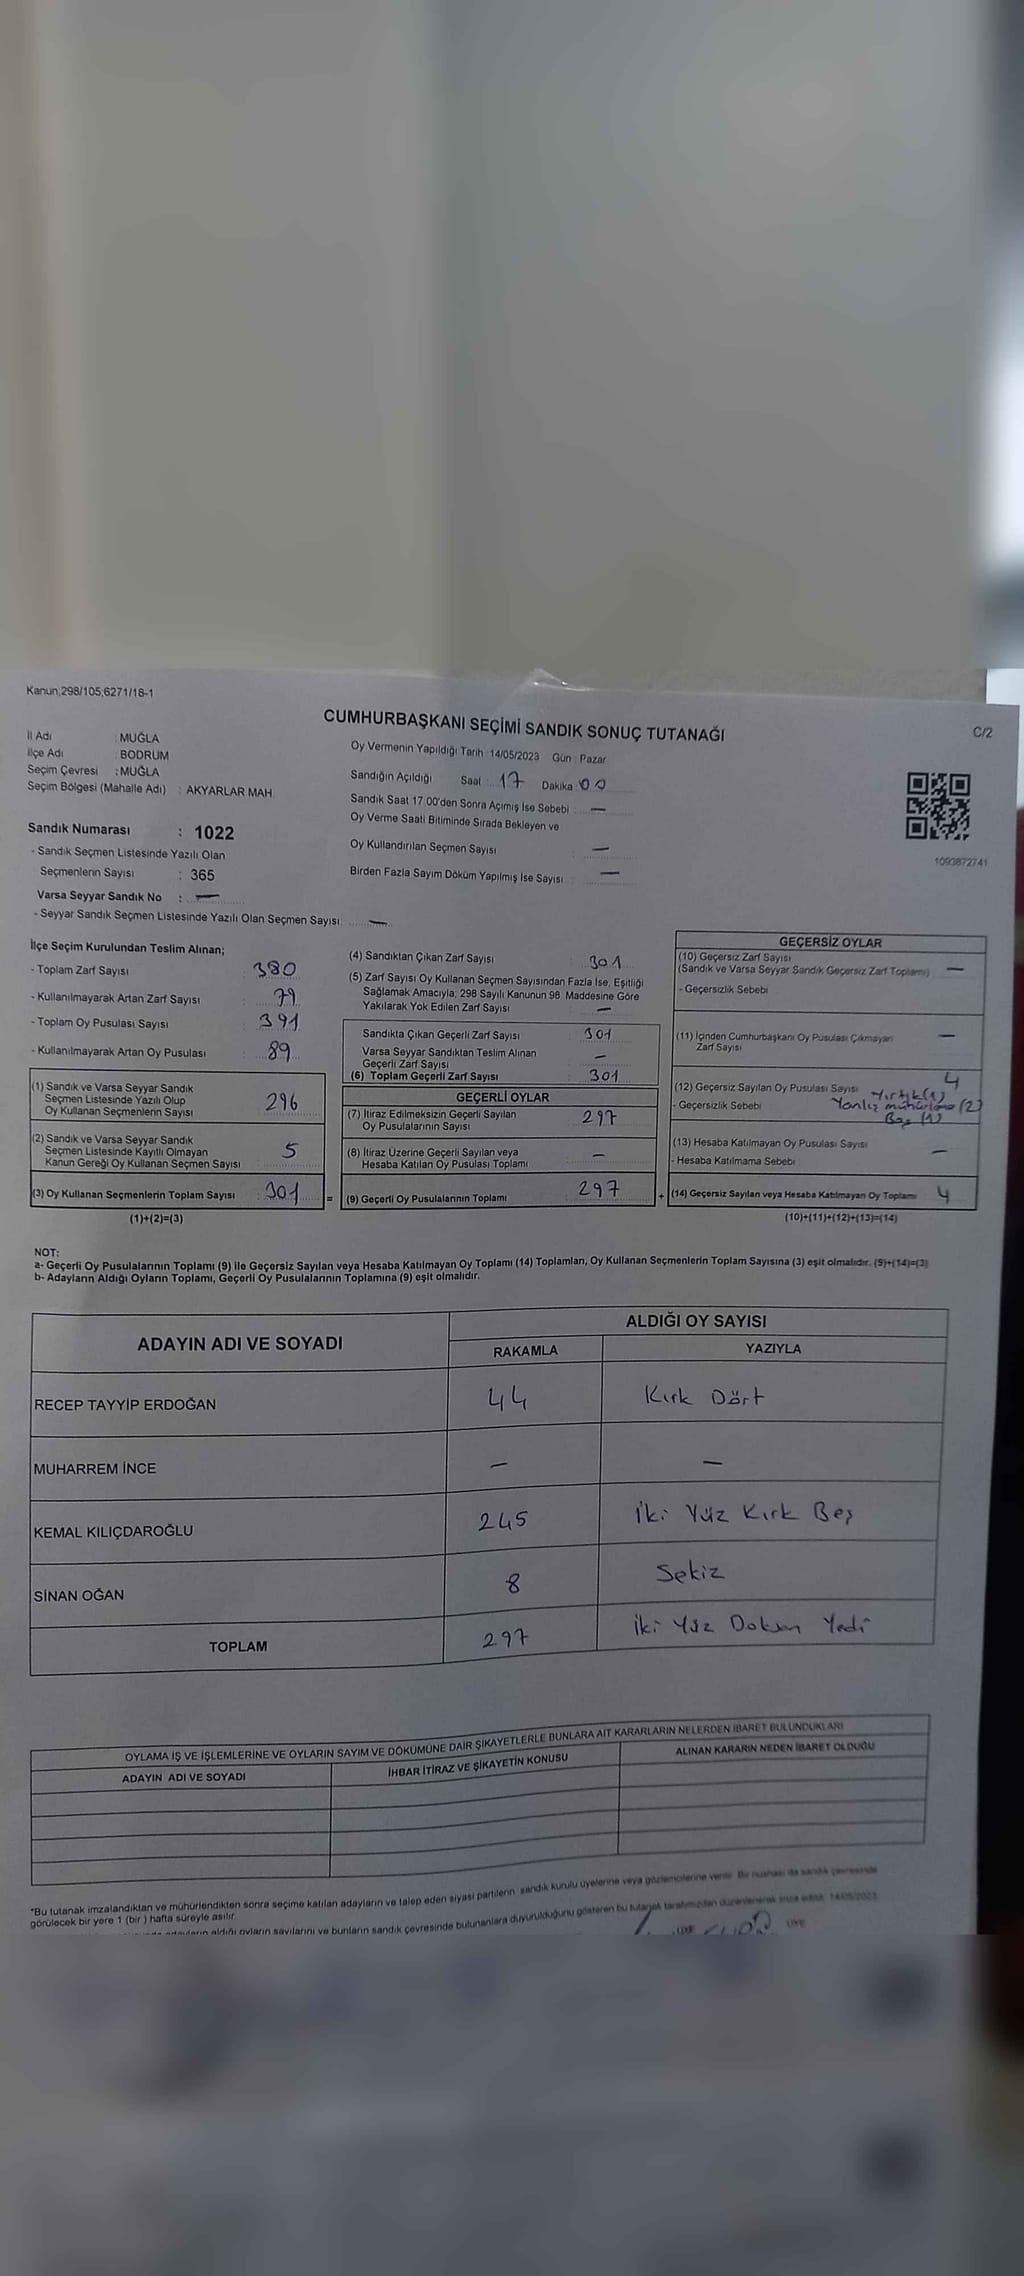 Kanun;298/105;6271/18-1
CUMHURBAŞKANI SEÇİMİ SANDIK SONUÇ TUTANAĞI
C/2
İl Adı : MUĞLA
İlçe Adı : BODRUM
Seçim Çevresi : MUĞLA
Seçim Bölgesi (Mahalle Adı) : AKYARLAR MAH.
Oy Vermenin Yapıldığı Tarih : 14/05/2023 Gün : Pazar
Sandığın Açıldığı Saat : 17 Dakika : 00
Sandık Saat 17:00'den Sonra Açımış İse Sebebi : —
Oy Verme Saati Bitiminde Sırada Bekleyen ve
Oy Kullandırılan Seçmen Sayısı : —
Birden Fazla Sayım Döküm Yapılmış İse Sayısı : —
1093872741
Sandık Numarası : 1022
- Sandık Seçmen Listesinde Yazılı Olan
Seçmenlerin Sayısı : 365
Varsa Seyyar Sandık No : —
- Seyyar Sandık Seçmen Listesinde Yazılı Olan Seçmen Sayısı: —
İlçe Seçim Kurulundan Teslim Alınan;
- Toplam Zarf Sayısı : 380
- Kullanılmayarak Artan Zarf Sayısı : 79
- Toplam Oy Pusulası Sayısı : 391
- Kullanılmayarak Artan Oy Pusulası : 89
(1) Sandık ve Varsa Seyyar Sandık
Seçmen Listesinde Yazılı Olup
Oy Kullanan Seçmenlerin Sayısı 296
(2) Sandık ve Varsa Seyyar Sandık
Seçmen Listesinde Kayıtlı Olmayan
Kanun Gereği Oy Kullanan Seçmen Sayısı 5
(3) Oy Kullanan Seçmenlerin Toplam Sayısı : 301 =
(1)+(2)=(3)
(4) Sandıktan Çıkan Zarf Sayısı : 301
(5) Zarf Sayısı Oy Kullanan Seçmen Sayısından Fazla İse, Eşitliği
Sağlamak Amacıyla; 298 Sayılı Kanunun 98 Maddesine Göre
Yakılarak Yok Edilen Zarf Sayısı : —
Sandıkta Çıkan Geçerli Zarf Sayısı : 301
Varsa Seyyar Sandıktan Teslim Alınan
Geçerli Zarf Sayısı : —
(6) Toplam Geçerli Zarf Sayısı : 301
GEÇERLİ OYLAR
(7) İtiraz Edilmeksizin Geçerli Sayılan
Oy Pusulalarının Sayısı : 297
(8) İtiraz Üzerine Geçerli Sayılan veya
Hesaba Katılan Oy Pusulası Toplamı : —
(9) Geçerli Oy Pusulalarının Toplamı : 297 +
GEÇERSİZ OYLAR
(10) Geçersiz Zarf Sayısı
(Sandık ve Varsa Seyyar Sandık Geçersiz Zarf Toplamı) —
- Geçersizlik Sebebi
(11) İçinden Cumhurbaşkanı Oy Pusulası Çıkmayan
Zarf Sayısı —
(12) Geçersiz Sayılan Oy Pusulası Sayısı 4
- Geçersizlik Sebebi Yırtık(1)
Yanlız mühürleme (2)
Boş (1)
(13) Hesaba Katılmayan Oy Pusulası Sayısı —
- Hesaba Katılmama Sebebi
(14) Geçersiz Sayılan veya Hesaba Katılmayan Oy Toplamı 4
(10)+(11)+(12)+(13)=(14)
NOT:
a- Geçerli Oy Pusulalarının Toplamı (9) ile Geçersiz Sayılan veya Hesaba Katılmayan Oy Toplamı (14) Toplamları, Oy Kullanan Seçmenlerin Toplam Sayısına (3) eşit olmalıdır. (9)+(14)=(3)
b- Adayların Aldığı Oyların Toplamı, Geçerli Oy Pusulalarının Toplamına (9) eşit olmalıdır.
ADAYIN ADI VE SOYADI
ALDIĞI OY SAYISI
RAKAMLA YAZIYLA
RECEP TAYYİP ERDOĞAN 44 Kırk Dört
MUHARREM İNCE — —
KEMAL KILIÇDAROĞLU 245 İki Yüz Kırk Beş
SİNAN OĞAN 8 Sekiz
TOPLAM 297 İki Yüz Doksan Yedi
OYLAMA İŞ VE İŞLEMLERİNE VE OYLARIN SAYIM VE DÖKÜMÜNE DAİR ŞİKAYETLERLE BUNLARA AİT KARARLARIN NELERDEN İBARET BULUNDUKLARI
ADAYIN ADI VE SOYADI İHBAR İTİRAZ VE ŞİKAYETİN KONUSU ALINAN KARARIN NEDEN İBARET OLDUĞU
*Bu tutanak imzalandıktan ve mühürlendikten sonra seçime katılan adayların ve talep eden siyasi partilerin sandık kurulu üyelerine veya gözlemcilerine verilir. Bir nüshası da sandık çevresinde
görülecek bir yere 1 (bir ) hafta süreyle asılır.
aldığı oyların sayılarını ve bunların sandık çevresinde bulunanlara duyurulduğunu gösteren bu tutanak tarafımızdan düzenlenerek imza edildi. 14/05/2023
ÜYE ÜYE